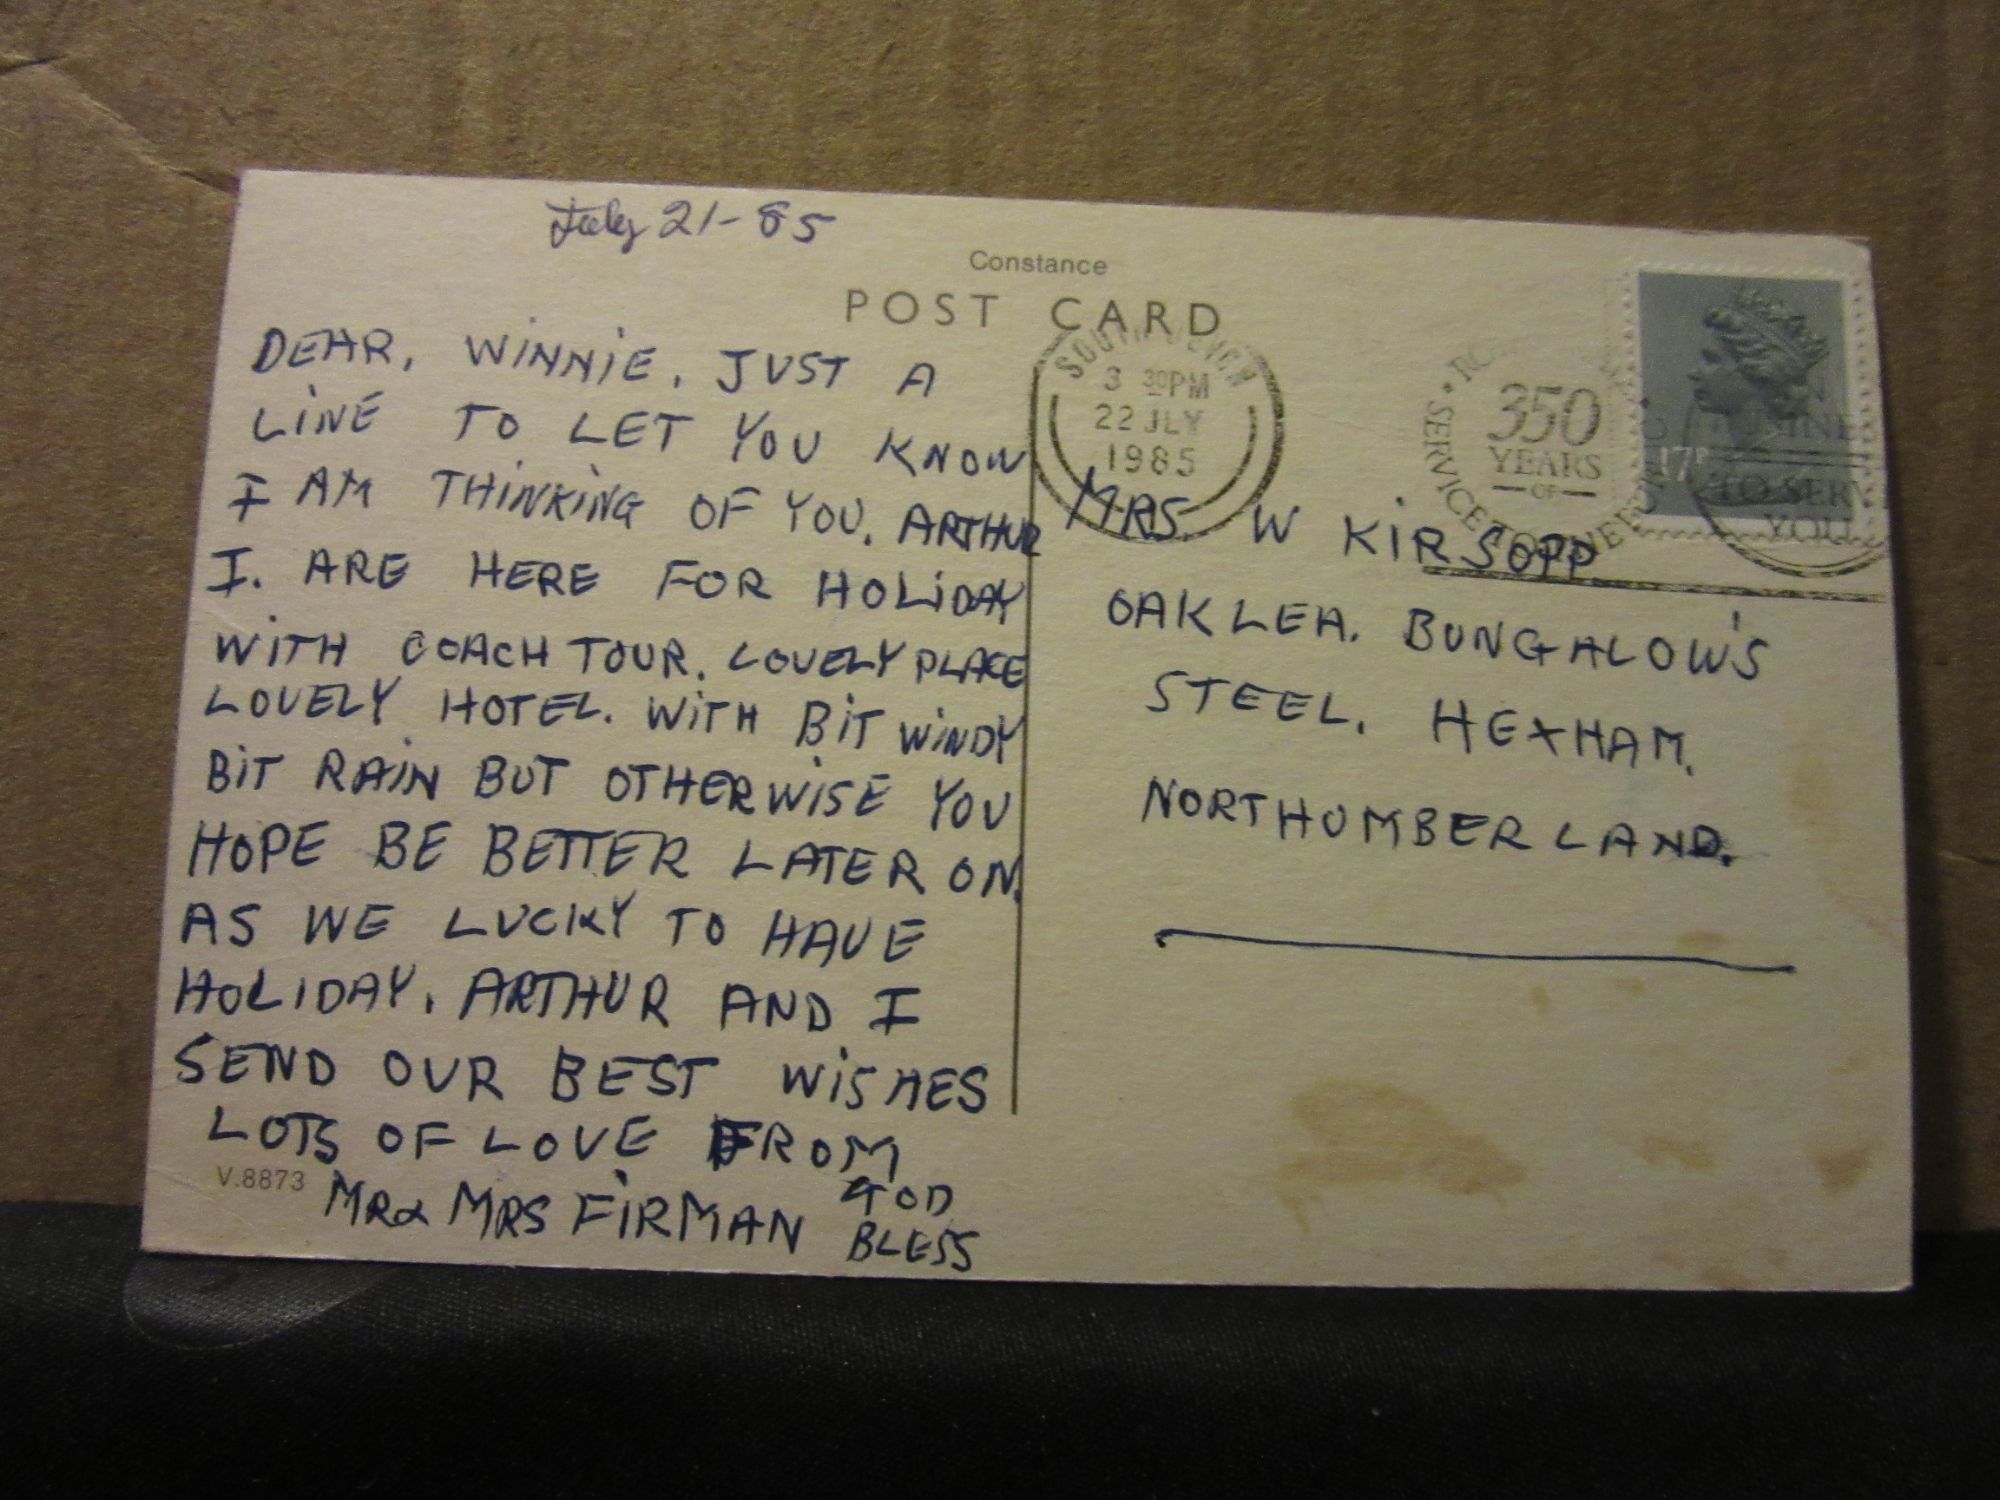 July 21-85
Constance
POST CARD
DEAR, WINNIE. JUST A
LINE TO LET YOU KNOW
I AM THINKING OF YOU. ARTHUR
I. ARE HERE FOR HOLIDAY
WITH COACH TOUR. LOVELY PLACE
LOVELY HOTEL. WITH BIT WINDY
BIT RAIN BUT OTHERWISE YOU
HOPE BE BETTER LATER ON.
AS WE LUCKY TO HAVE
HOLIDAY. ARTHUR AND I
SEND OUR BEST WISHES
LOTS OF LOVE FROM
MR & MRS FIRMAN GOD
BLESS
V.8873
3 30PM
22 JLY
1985
350
YEARS
OF
SERVICE TO THE
17P
TO SERVE
YOU
MRS. W KIRSOPP
OAKLEA. BUNGALOW'S
STEEL. HEXHAM.
NORTHUMBERLAND.